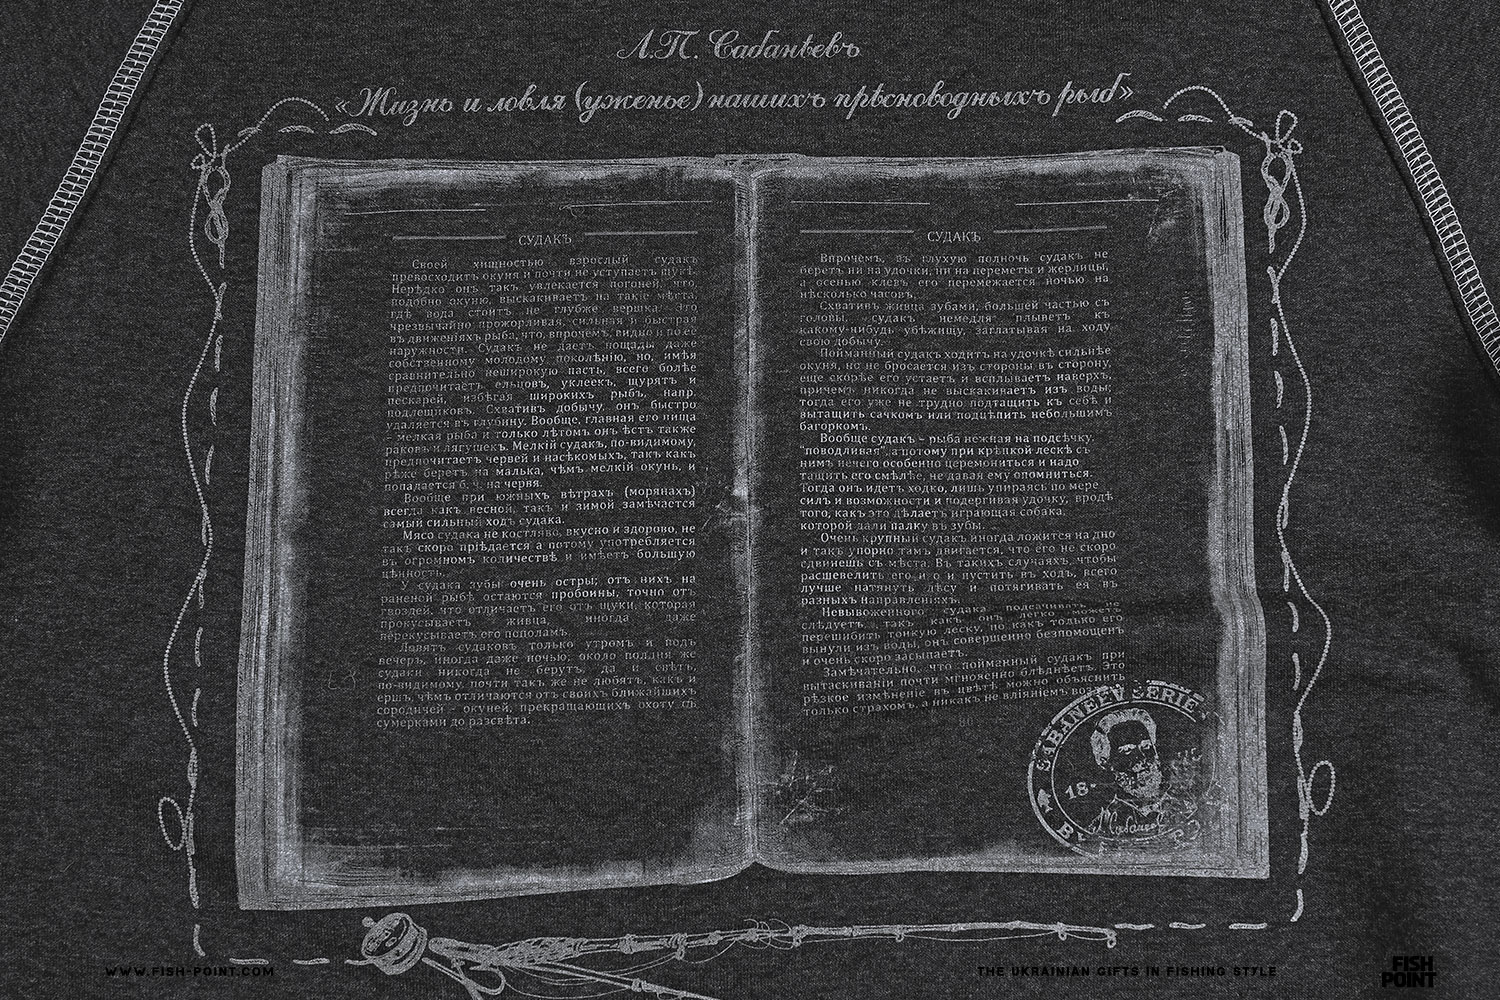 Л.П. Сабанѣевъ
«Жизнь и ловля (уженье) нашихъ прѣсноводныхъ рыб»
СУДАКЪ
Своей хищностью взрослый судакъ
превосходитъ окуня и почти не уступаетъ щукѣ.
Нерѣдко онъ такъ увлекается погоней, что,
подобно окуню, выскакиваетъ на такіе мѣста,
гдѣ вода стоитъ не глубже вершка. Это
чрезвычайно прожорливая, сильная и быстрая
въ движеніяхъ рыба, что, впрочемъ, видно и по ее
наружности. Судакъ не даетъ пощады даже
собственному молодому поколѣнію, но, имѣя
сравнительно неширокую пасть, всего болѣе
предпочитаетъ ельцовъ, уклеекъ, щурятъ и
пескарей, избѣгая широкихъ рыбъ, напр.
подлещиковъ. Схвативъ добычу, онъ быстро
удаляется въ глубину. Вообще, главная его пища
– мелкая рыба и только лѣтомъ онъ ѣстъ также
раковъ и лягушекъ. Мелкій судакъ, по-видимому,
предпочитаетъ червей и насѣкомыхъ, такъ какъ
рѣже беретъ на малька, чѣмъ мелкій окунь, и
попадается б. ч. на червя.
Вообще при южныхъ вѣтрахъ (морянахъ)
всегда какъ весной, такъ и зимой замѣчается
самый сильный ходъ судака.
Мясо судака не костляво, вкусно и здорово, не
такъ скоро пріѣдается а потому употребляется
въ огромномъ количествѣ и имѣетъ большую
цѣнность.
У судака зубы очень остры; отъ нихъ на
раненой рыбѣ остаются пробоины, точно отъ
гвоздей, что отличаетъ его отъ щуки, которая
прокусываетъ живца, иногда даже
перекусываетъ его пополамъ.
Ловятъ судаковъ только утромъ и подъ
вечеръ, иногда даже ночью; около полдня же
судаки никогда не берутъ да и свѣтъ,
по-видимому, почти такъ же не любятъ, какъ и
ершъ, чѣмъ отличаются отъ своихъ ближайшихъ
сородичей – окуней, прекращающихъ охоту съ
сумерками до разсвѣта.
СУДАКЪ
Впрочемъ, въ глухую полночь судакъ не
беретъ ни на удочки, ни на переметы и жерлицы,
а осенью клевъ его перемежается ночью на
нѣсколько часовъ.
Схвативъ живца зубами, большей частью съ
головы, судакъ немедля плыветъ къ
какому-нибудь убѣжищу, заглатывая на ходу
свою добычу.
Пойманный судакъ ходитъ на удочкѣ сильнѣе
окуня, но не бросается изъ стороны въ сторону,
еще скорѣе его устаетъ и всплываетъ наверхъ,
причемъ никогда не выскакиваетъ изъ воды;
тогда его уже не трудно подтащить къ себѣ и
вытащить сачкомъ или подцѣпить небольшимъ
багоркомъ.
Вообще судакъ – рыба нежная на подсѣчку.
"поводливая", а потому при крѣпкой лескѣ съ
нимъ нечего особенно церемониться и надо
тащить его смѣлѣе, не давая ему опомниться.
Тогда онъ идетъ ходко, лишь упираясь по мере
силъ и возможности и подергивая удочку, вродѣ
того, какъ это дѣлаетъ играющая собака,
которой дали палку въ зубы.
Очень крупный судакъ иногда ложится на дно
и такъ упорно тамъ двигается, что его не скоро
сдвинешь съ мѣста. Въ такихъ случаяхъ, чтобы
расшевелить его и пустить въ ходъ, всего
лучше натянуть лѣсу и потягивать ея въ
разныхъ направленіяхъ.
Невывоженного судака подсачивать не
слѣдуетъ, такъ какъ онъ легко можетъ
перешибить тонкую леску, но какъ только его
вынули изъ воды, онъ совершенно безпомощенъ
и очень скоро засыпаетъ.
Замѣчательно, что пойманный судакъ при
вытаскиваніи почти мгновенно блѣднѣетъ. Это
рѣзкое измѣненіе въ цвѣтѣ можно объяснить
только страхомъ, а никакъ не вліяніемъ
SABANEEV SERIE
18
WWW.FISH-POINT.COM
THE UKRAINIAN GIFTS IN FISHING STYLE
FISH
POINT